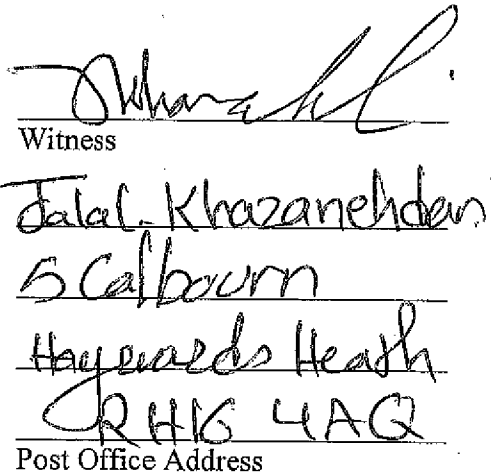 Witness
Jalal. Khazanehdari
5 Calbourn
Haywards Heath
RH16 4AQ
Post Office Address